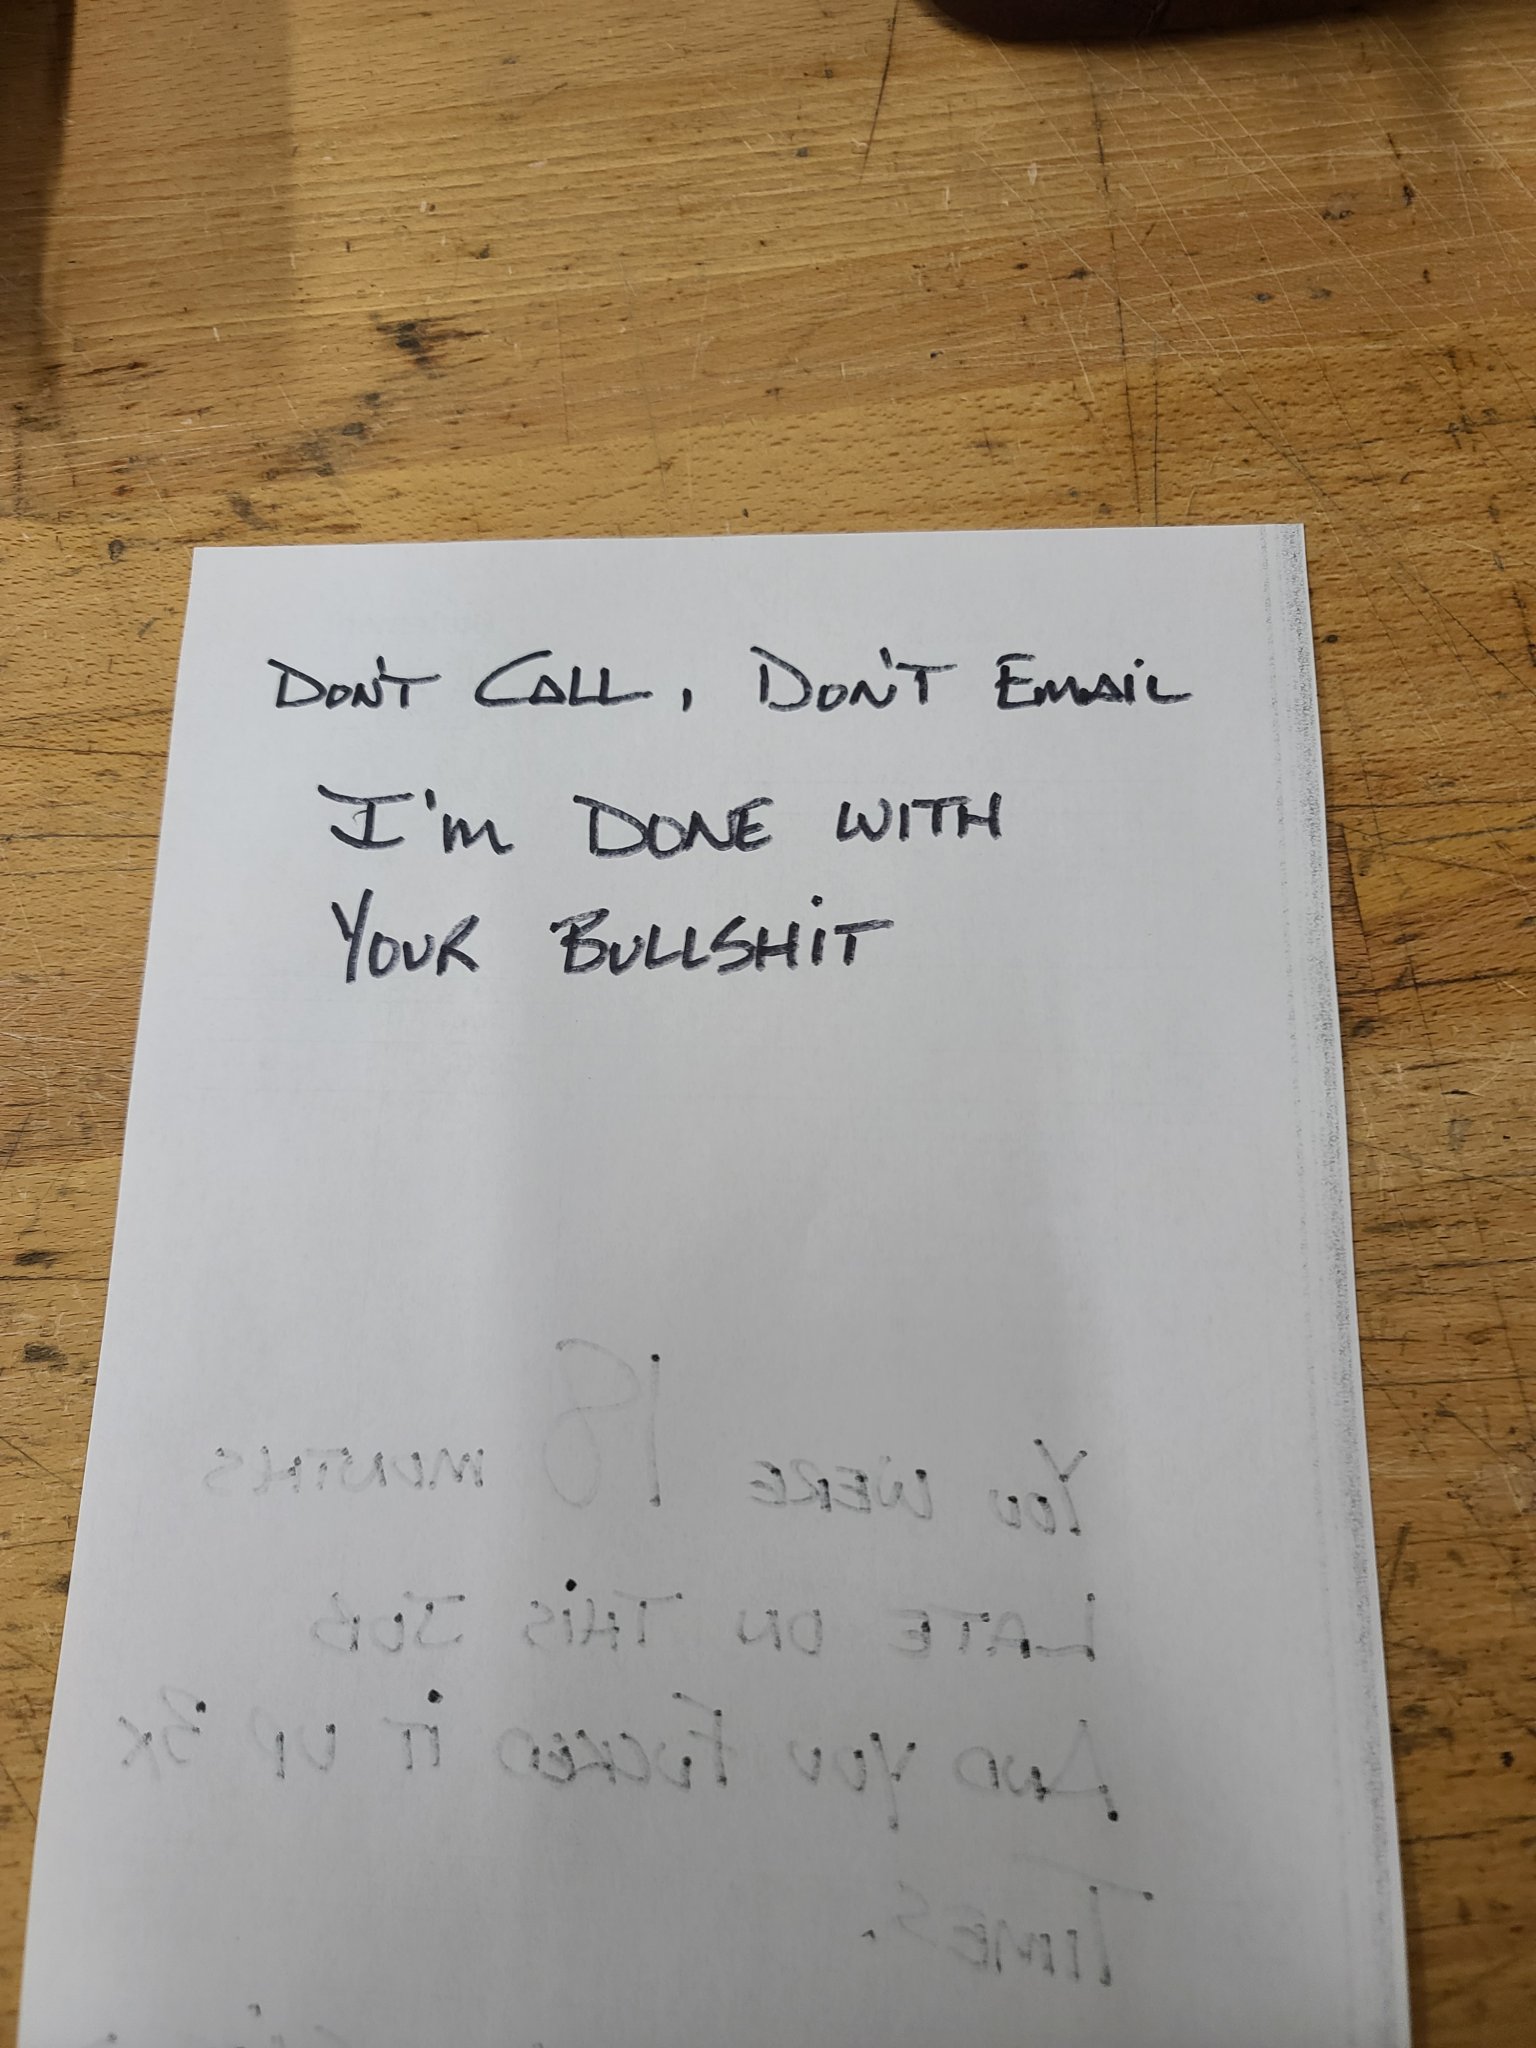 DON'T CALL, DON'T EMAIL
I'm DONE WITH
YOUR BULLSHiT
YOU WERE 18 MONTHS
LATE ON THiS JOB
AND YOU FUCKED iT UP 3X
TIMES.